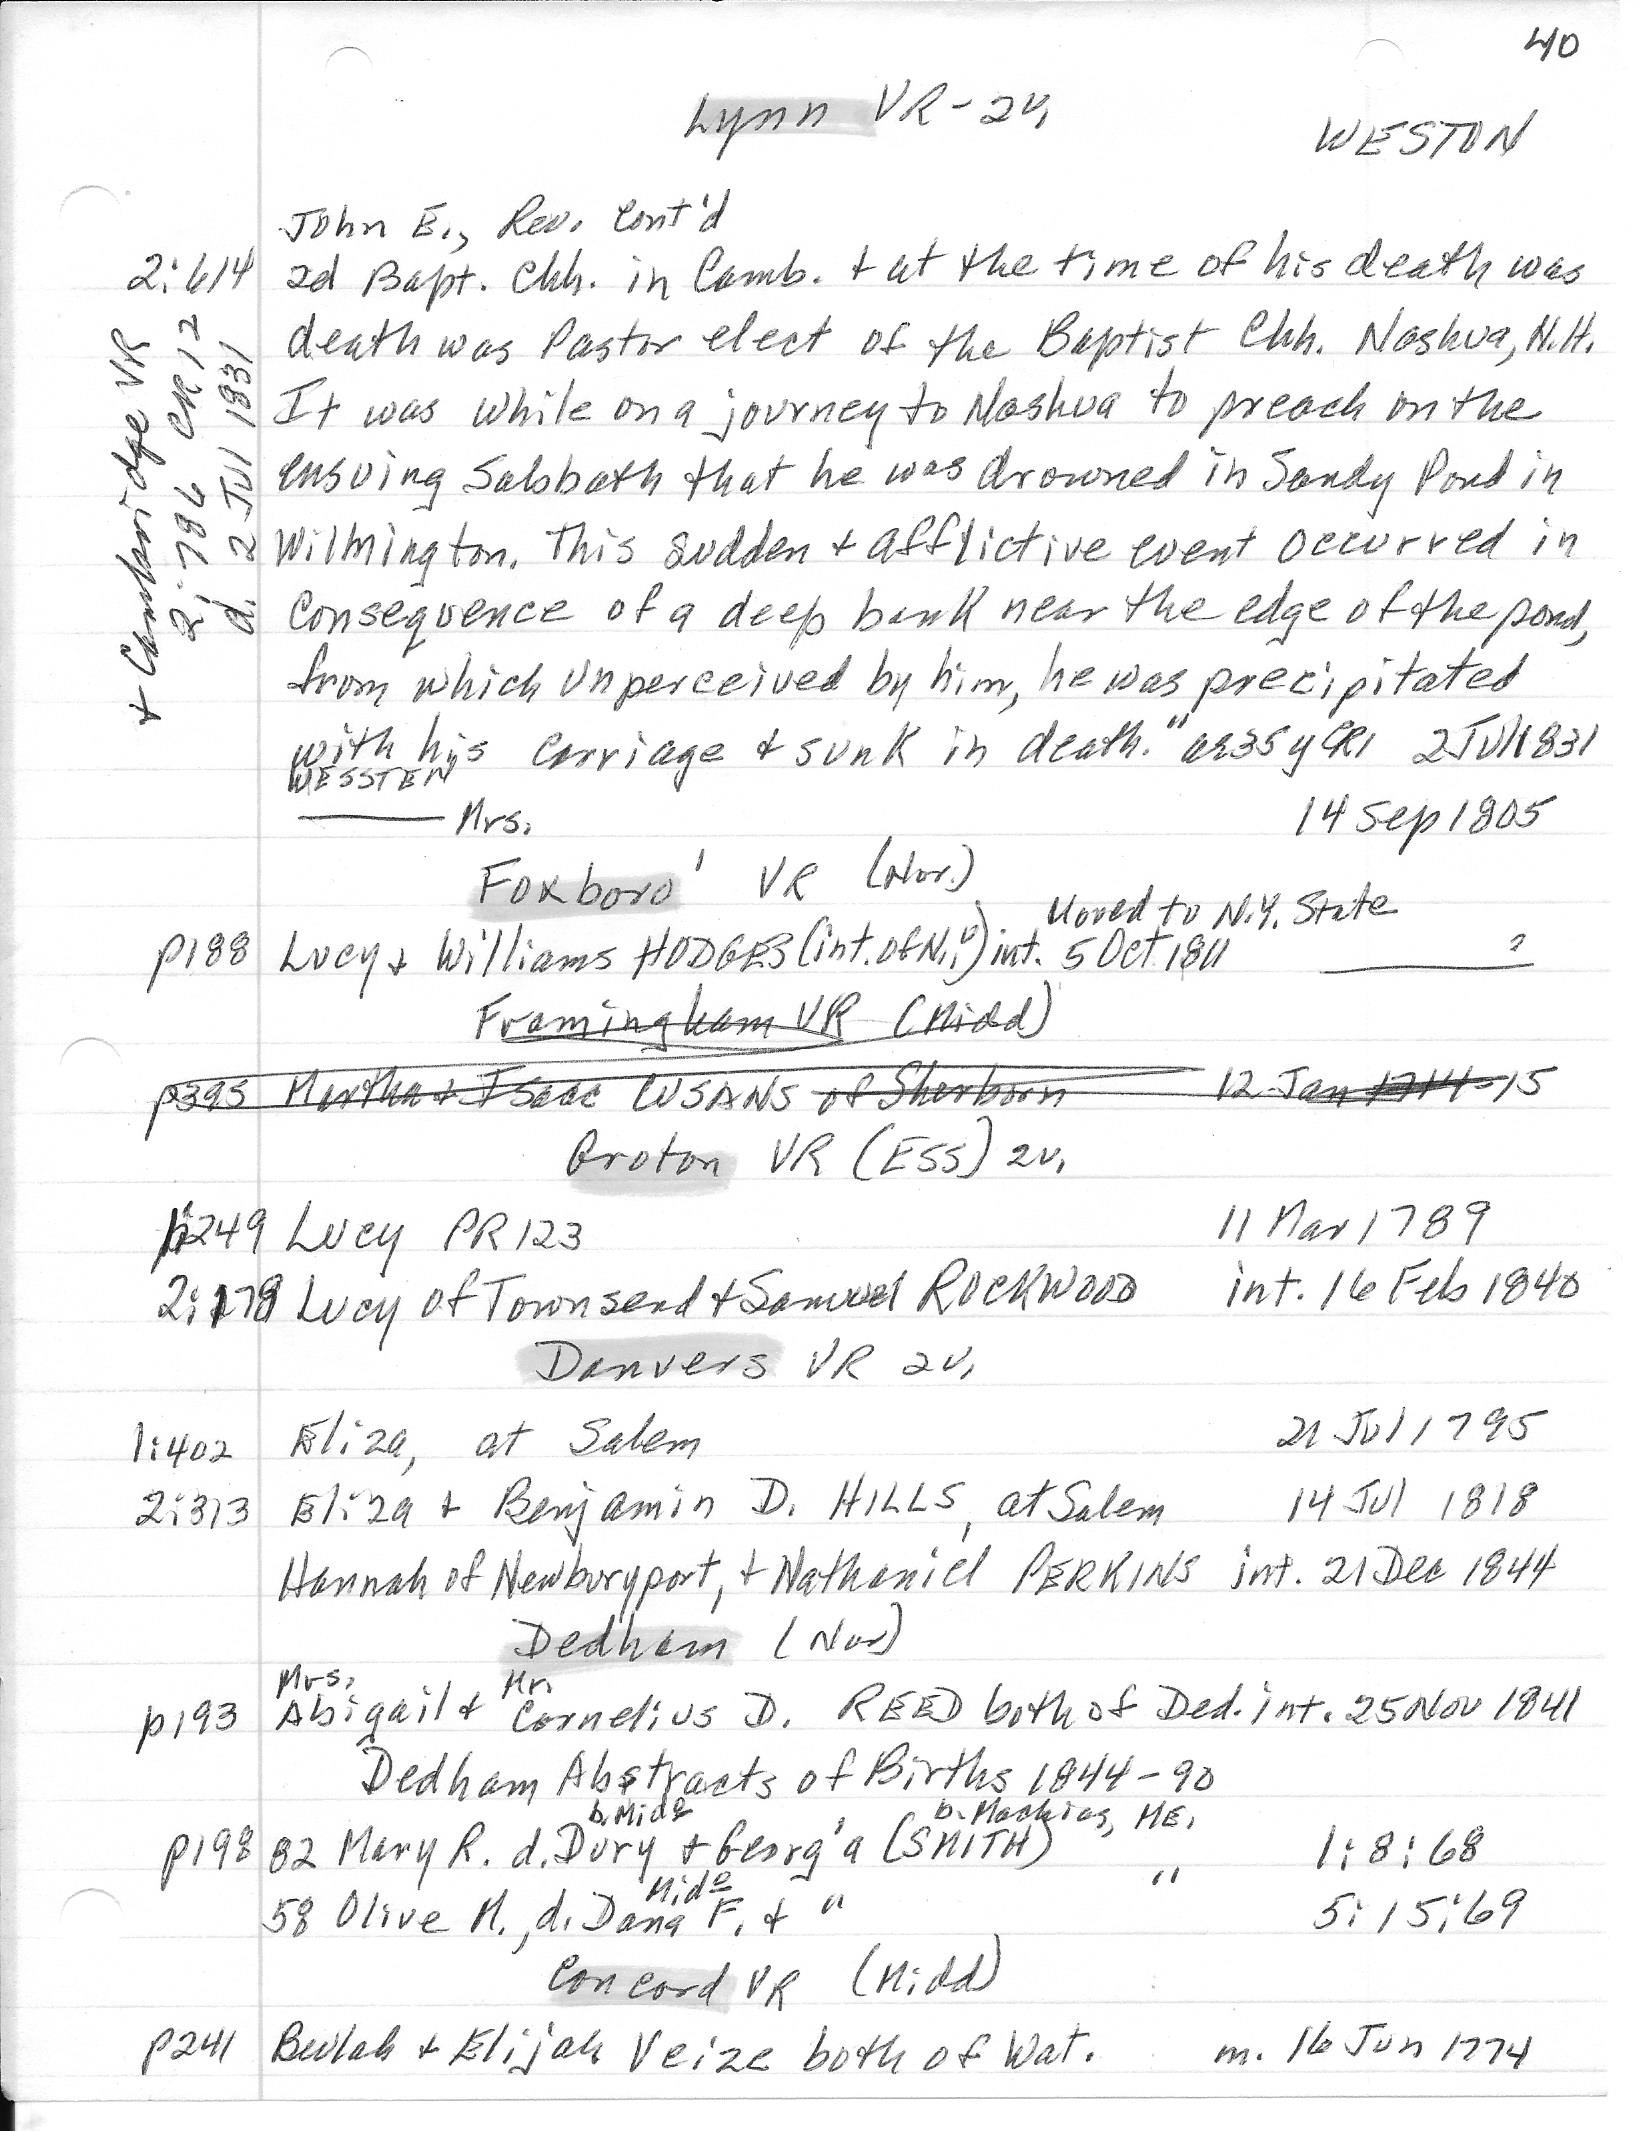 40
Lynn VR - 2v.
WESTON
John E., Rev. Cont'd
2:614 2d Bapt. Chh. in Camb. + at the time of his death was
death was Pastor elect of the Baptist Chh. Nashua, N.H.
It was while on a journey to Nashua to preach on the
ensuing Sabbath that he was drowned in Sandy Pond in
Wilmington. This sudden + afflictive event occurred in
consequence of a deep bank near the edge of the pond,
from which unperceived by him, he was precipitated
with his carriage + sunk in death." ae 35 y CR1 2 Jul 1831
+ Cambridge VR
2:786 CR12
d. 2 Jul 1831
WESSTEN
——— Mrs. 14 Sep 1805
Foxboro' VR (Nor.)
Moved to N.Y. State
p188 Lucy + Williams HODGES (int. of N.) int. 5 Oct 1811 ——— ?
Framingham VR (Midd)
p395 Martha + Isaac CUSANS of Sherborn 12 Jan 1714-15
Groton VR (ESS) 2v.
1:249 Lucy PR123 11 Mar 1789
2:178 Lucy of Townsend + Samuel ROCKWOOD int. 16 Feb 1840
Danvers VR 2v.
1:402 Eliza, at Salem 21 Jul 1795
2:313 Eliza + Benjamin D. HILLS, at Salem 14 Jul 1818
Hannah of Newburyport, + Nathaniel PERKINS int. 21 Dec 1844
Dedham (Nor)
Mrs. Mr.
p193 Abigail + Cornelius D. REED both of Ded. int. 25 Nov 1841
Dedham Abstracts of Births 1844-90
b. Mide b. Machias, ME.
p198 82 Mary R. d. Dury + Georg'a (SMITH) 1:8:68
Mide "
58 Olive M., d. Dana F. + " 5:15:69
Concord VR (Midd)
p241 Beulah + Elijah Veize both of Wat. m. 16 Jun 1774